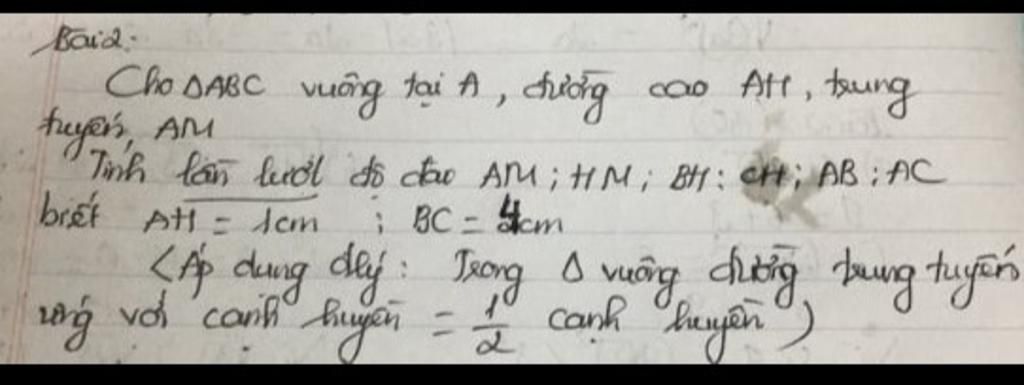 Bài 2:
Cho ΔABC vuông tại A, đường cao AH, trung
tuyến, AM
Tính lần lượt độ dài AM; HM; BH; CH; AB; AC
biết AH = 1cm ; BC = 4cm
(Áp dụng đlý: Trong Δ vuông đường trung tuyến
ứng với cạnh huyền = 1/2 cạnh huyền)